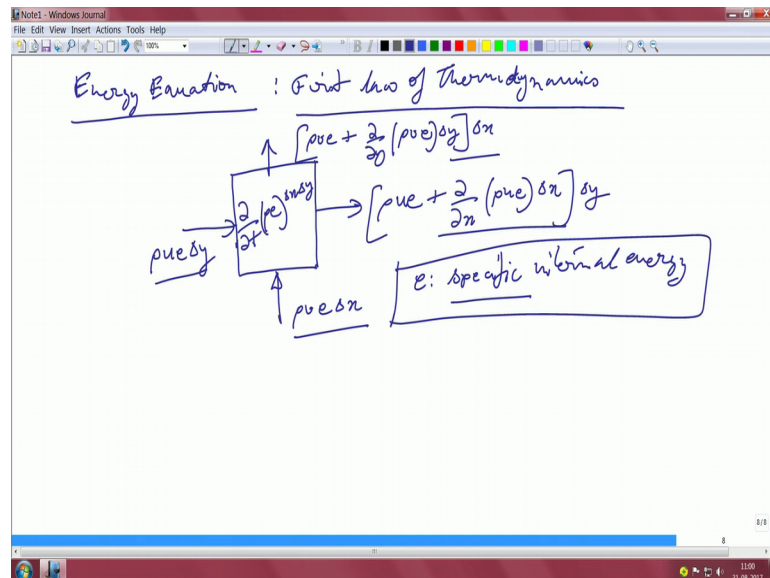 Note1 - Windows Journal
File Edit View Insert Actions Tools Help
100%
Energy Equation : First law of Thermidynamics
[ρve + ∂/∂y (ρve) δy] δx
∂/∂t (ρe) δx δy
[ρue + ∂/∂x (ρue) δx] δy
ρue δy
e: specific internal energy
ρve δx
8/8
8
11:00
21-08-2017